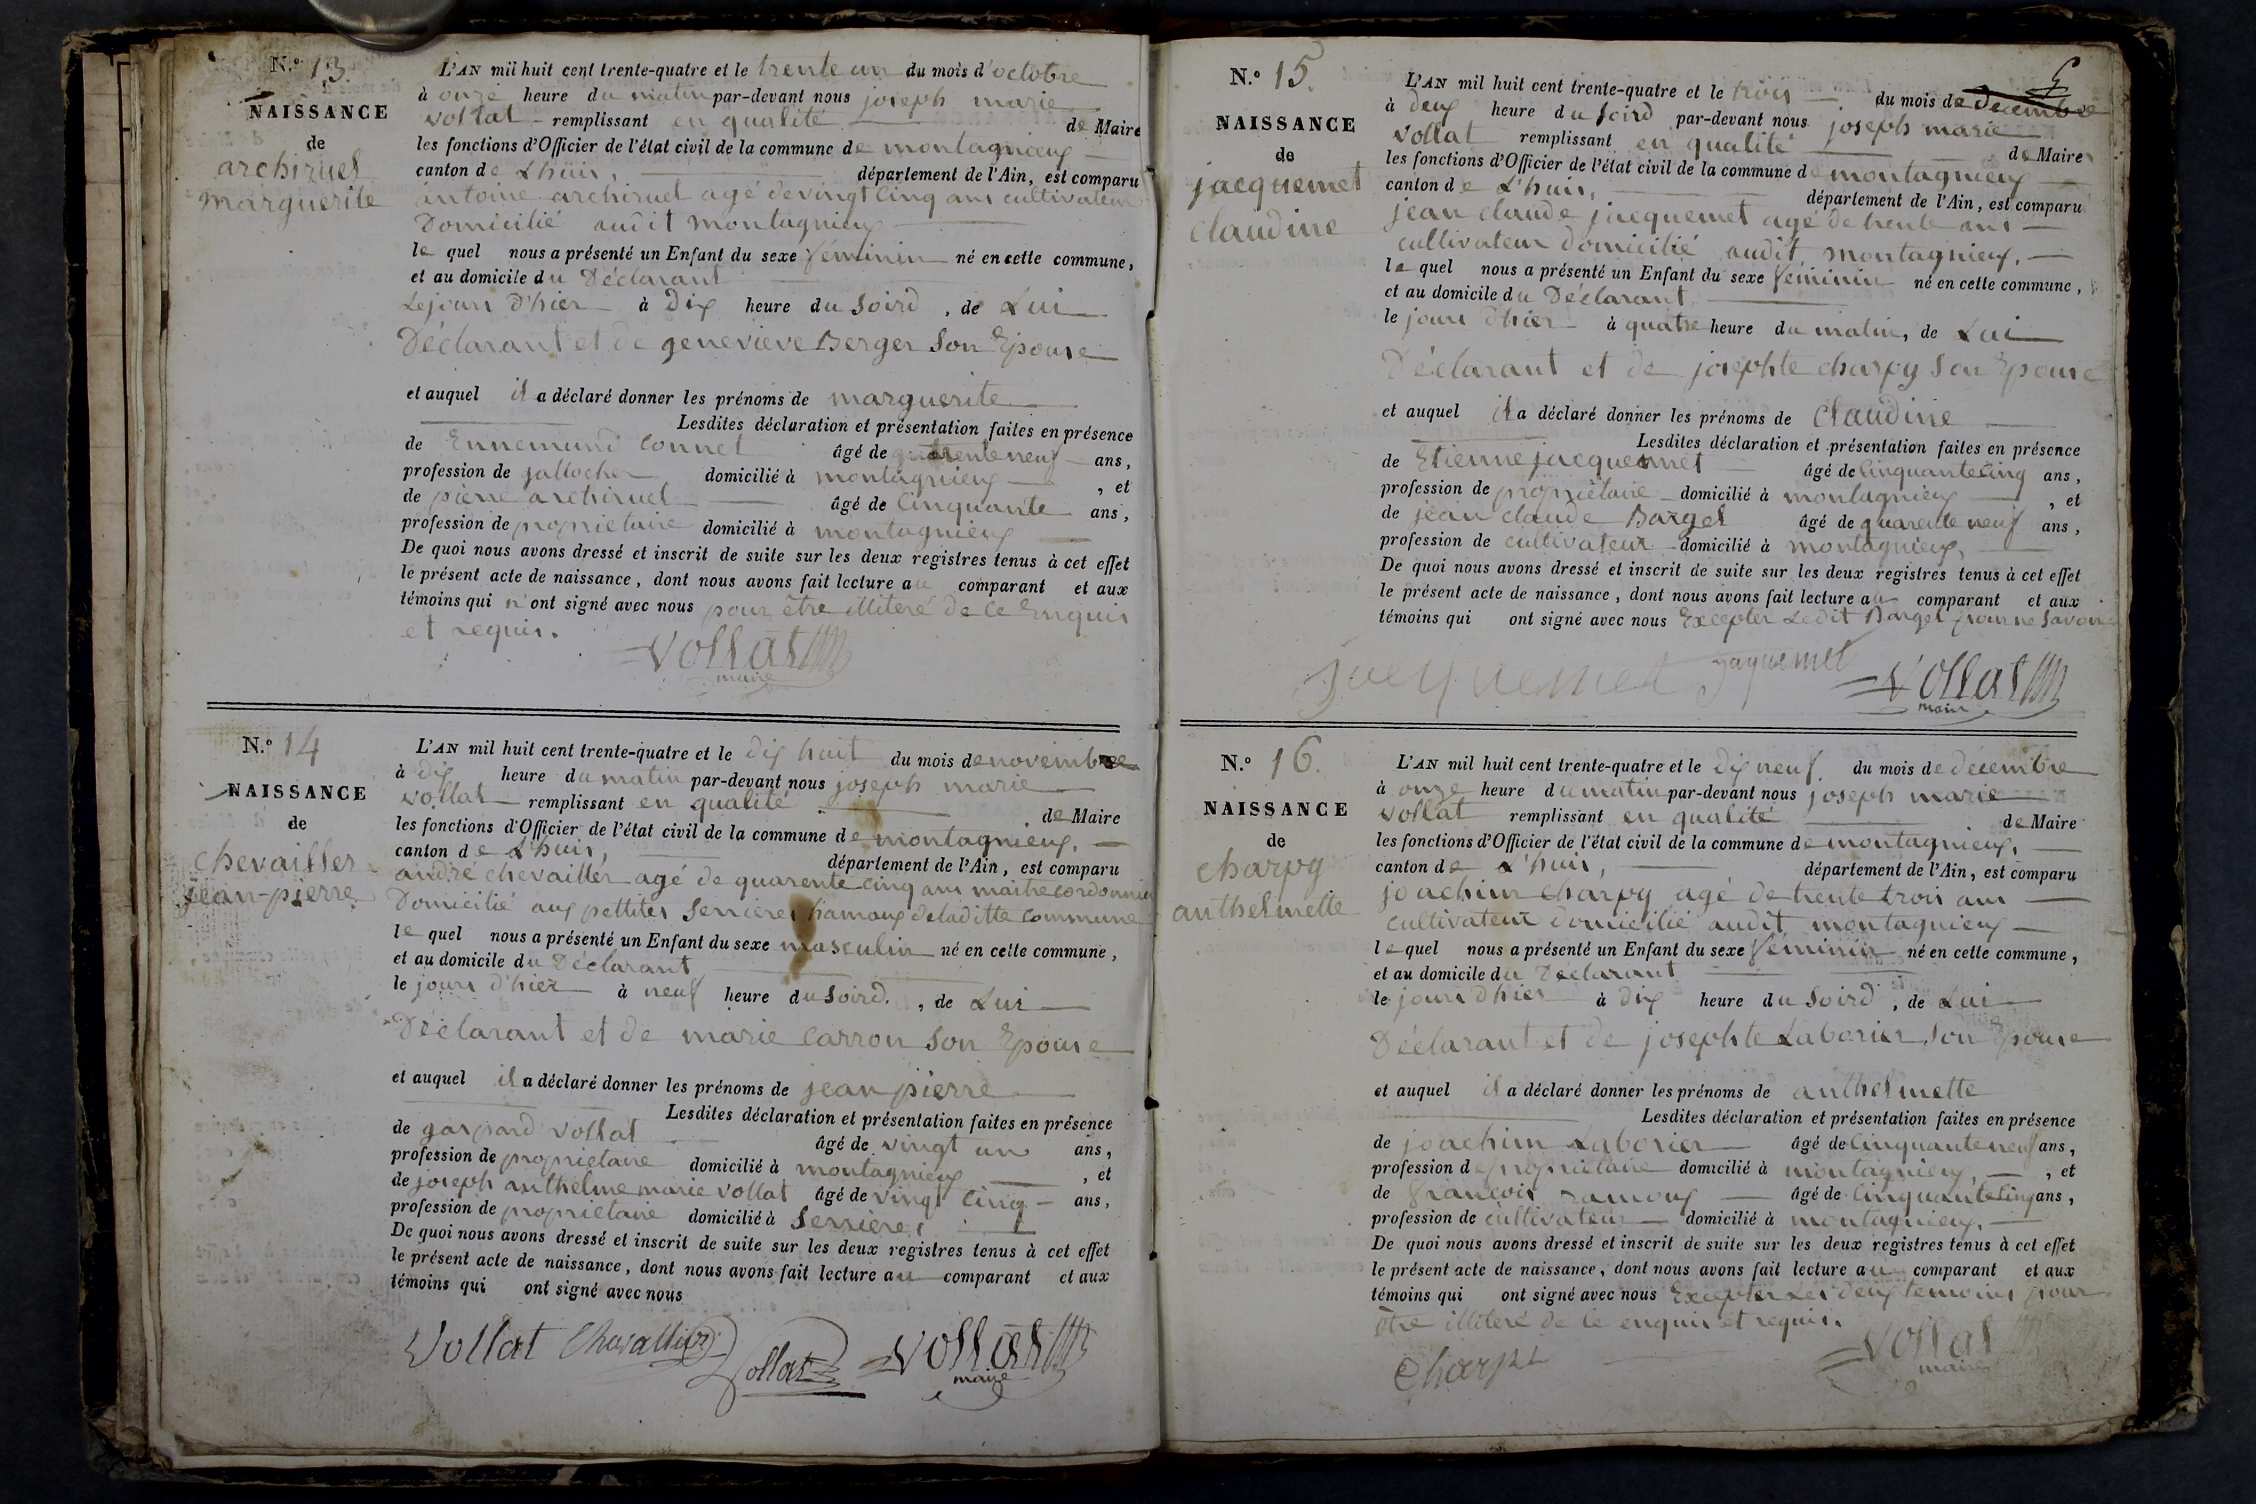 N.º 13.
NAISSANCE
de
archiruel
marguerite
L'AN mil huit cent trente-quatre et le trente un du mois d'octobre
à onze heure du matin par-devant nous joseph marie
vollat remplissant en qualité de Maire
les fonctions d'Officier de l'état civil de la commune de montagnieux
canton de Lhuis, département de l'Ain, est comparu
antoine archiruel agé de vingt cinq ans cultivateur
Domicilié audit montagnieux
le quel nous a présenté un Enfant du sexe féminin né en cette commune,
et au domicile du Déclarant
Le jours d'hier à Dix heure du soird, de Lui
Déclarant et de genevieve Berger son Epouse
et auquel il a déclaré donner les prénoms de marguerite
Lesdites déclaration et présentation faites en présence
de Ennemund Connet âgé de trente neuf ans,
profession de domicilié à montagnieux, et
de pierre archiruel âgé de Cinquante ans,
profession de proprietaire domicilié à montagnieux
De quoi nous avons dressé et inscrit de suite sur les deux registres tenus à cet effet
le présent acte de naissance, dont nous avons fait lecture au comparant et aux
témoins qui n'ont signé avec nous pour être illiteré de ce Enquis
et requis.
Vollat
maire
N.º 14
NAISSANCE
de
chevailler
jean-pierre
L'AN mil huit cent trente-quatre et le dix huit du mois de novembre
à dix heure du matin par-devant nous joseph marie
vollat remplissant en qualité de Maire
les fonctions d'Officier de l'état civil de la commune de montagnieux,
canton de L'huis, département de l'Ain, est comparu
andré chevailler agé de quarente cinq ans maitre cordonnier
Domicilié aux pettites Serrieres hamaux de laditte commune
le quel nous a présenté un Enfant du sexe masculin né en cette commune,
et au domicile du Déclarant
le jours d'hier à neuf heure du soird, de Lui
Déclarant et de marie Carron son Epouse
et auquel il a déclaré donner les prénoms de jean pierre
Lesdites déclaration et présentation faites en présence
de gaspard vollat âgé de vingt un ans,
profession de proprietaire domicilié à montagnieux, et
de joseph anthelme marie vollat âgé de vingt cinq ans,
profession de proprietaire domicilié à Serrieres
De quoi nous avons dressé et inscrit de suite sur les deux registres tenus à cet effet
le présent acte de naissance, dont nous avons fait lecture au comparant et aux
témoins qui ont signé avec nous
Vollat Chevallier Vollat Vollat
maire
N.º 15.
NAISSANCE
de
jacquemet
claudine
L'AN mil huit cent trente-quatre et le trois du mois de decembre
à deux heure du soird par-devant nous joseph marie
vollat remplissant en qualité de Maire
les fonctions d'Officier de l'état civil de la commune de montagnieux
canton de L'huis, département de l'Ain, est comparu
jean claude jacquemet agé de trente ans
cultivateur domicilié audit montagnieux,
le quel nous a présenté un Enfant du sexe féminin né en cette commune,
et au domicile du Déclarant
le jours d'hier à quatre heure du matin, de Lui
Déclarant et de josephte charpy son Epouse
et auquel il a déclaré donner les prénoms de Claudine
Lesdites déclaration et présentation faites en présence
de Etienne jacquemet âgé de Cinquante Cinq ans,
profession de propriétaire domicilié à montagnieux, et
de jean claude Barget âgé de quarente neuf ans,
profession de cultivateur domicilié à montagnieux,
De quoi nous avons dressé et inscrit de suite sur les deux registres tenus à cet effet
le présent acte de naissance, dont nous avons fait lecture au comparant et aux
témoins qui ont signé avec nous Excepter Ledit Barget pour ne savoir
jacquemet jaquemet Vollat
maire
N.º 16.
NAISSANCE
de
charpy
anthelmette
L'AN mil huit cent trente-quatre et le dix neuf du mois de décembre
à onze heure du matin par-devant nous joseph marie
vollat remplissant en qualité de Maire
les fonctions d'Officier de l'état civil de la commune de montagnieux,
canton de L'huis, département de l'Ain, est comparu
joachim charpy agé de trente trois ans
cultivateur domicilié audit montagnieux
le quel nous a présenté un Enfant du sexe féminin né en cette commune,
et au domicile du Déclarant
le jours d'hier à dix heure du soird, de Lui
Déclarant et de josephte Laborier son Epouse
et auquel il a déclaré donner les prénoms de anthelmette
Lesdites déclaration et présentation faites en présence
de joachim Laborier âgé de Cinquante neuf ans,
profession de propriétaire domicilié à montagnieux, et
de françois ramoux âgé de Cinquante Cinq ans,
profession de cultivateur domicilié à montagnieux,
De quoi nous avons dressé et inscrit de suite sur les deux registres tenus à cet effet
le présent acte de naissance, dont nous avons fait lecture au comparant et aux
témoins qui ont signé avec nous Excepter Les deux temoins pour
être illiteré de ce enquis et requis.
Charpi Vollat
maire